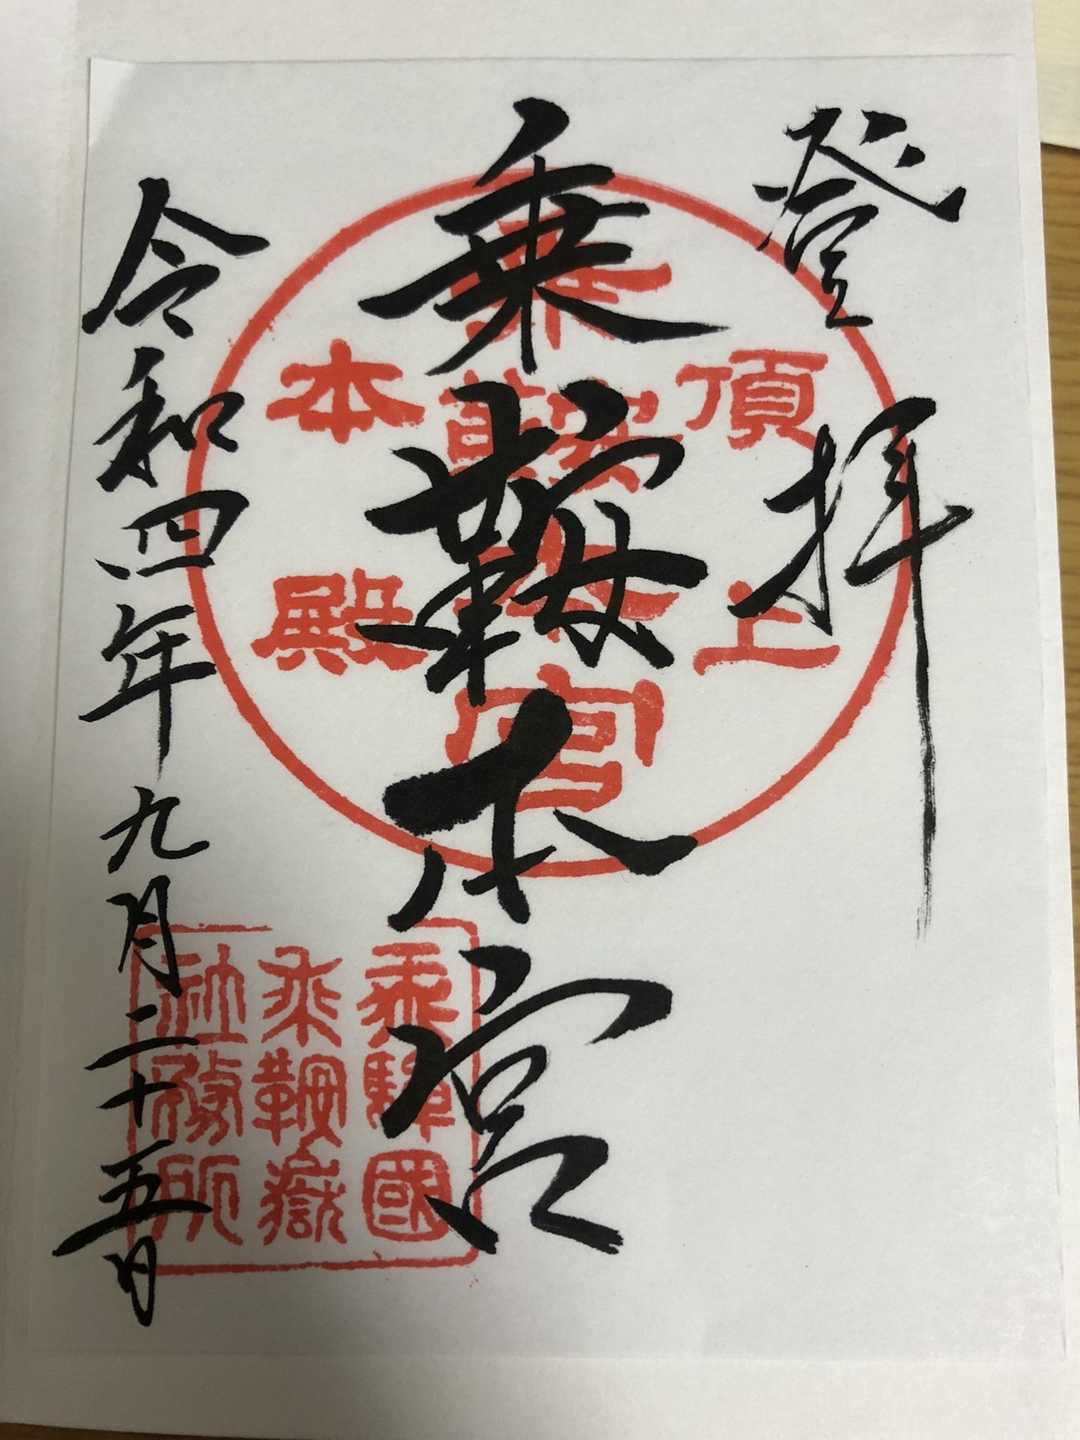 登拝
乗鞍本宮
令和四年九月二十五日
頂上
乗鞍本宮
本殿
飛驒國
乗鞍嶽
社務所